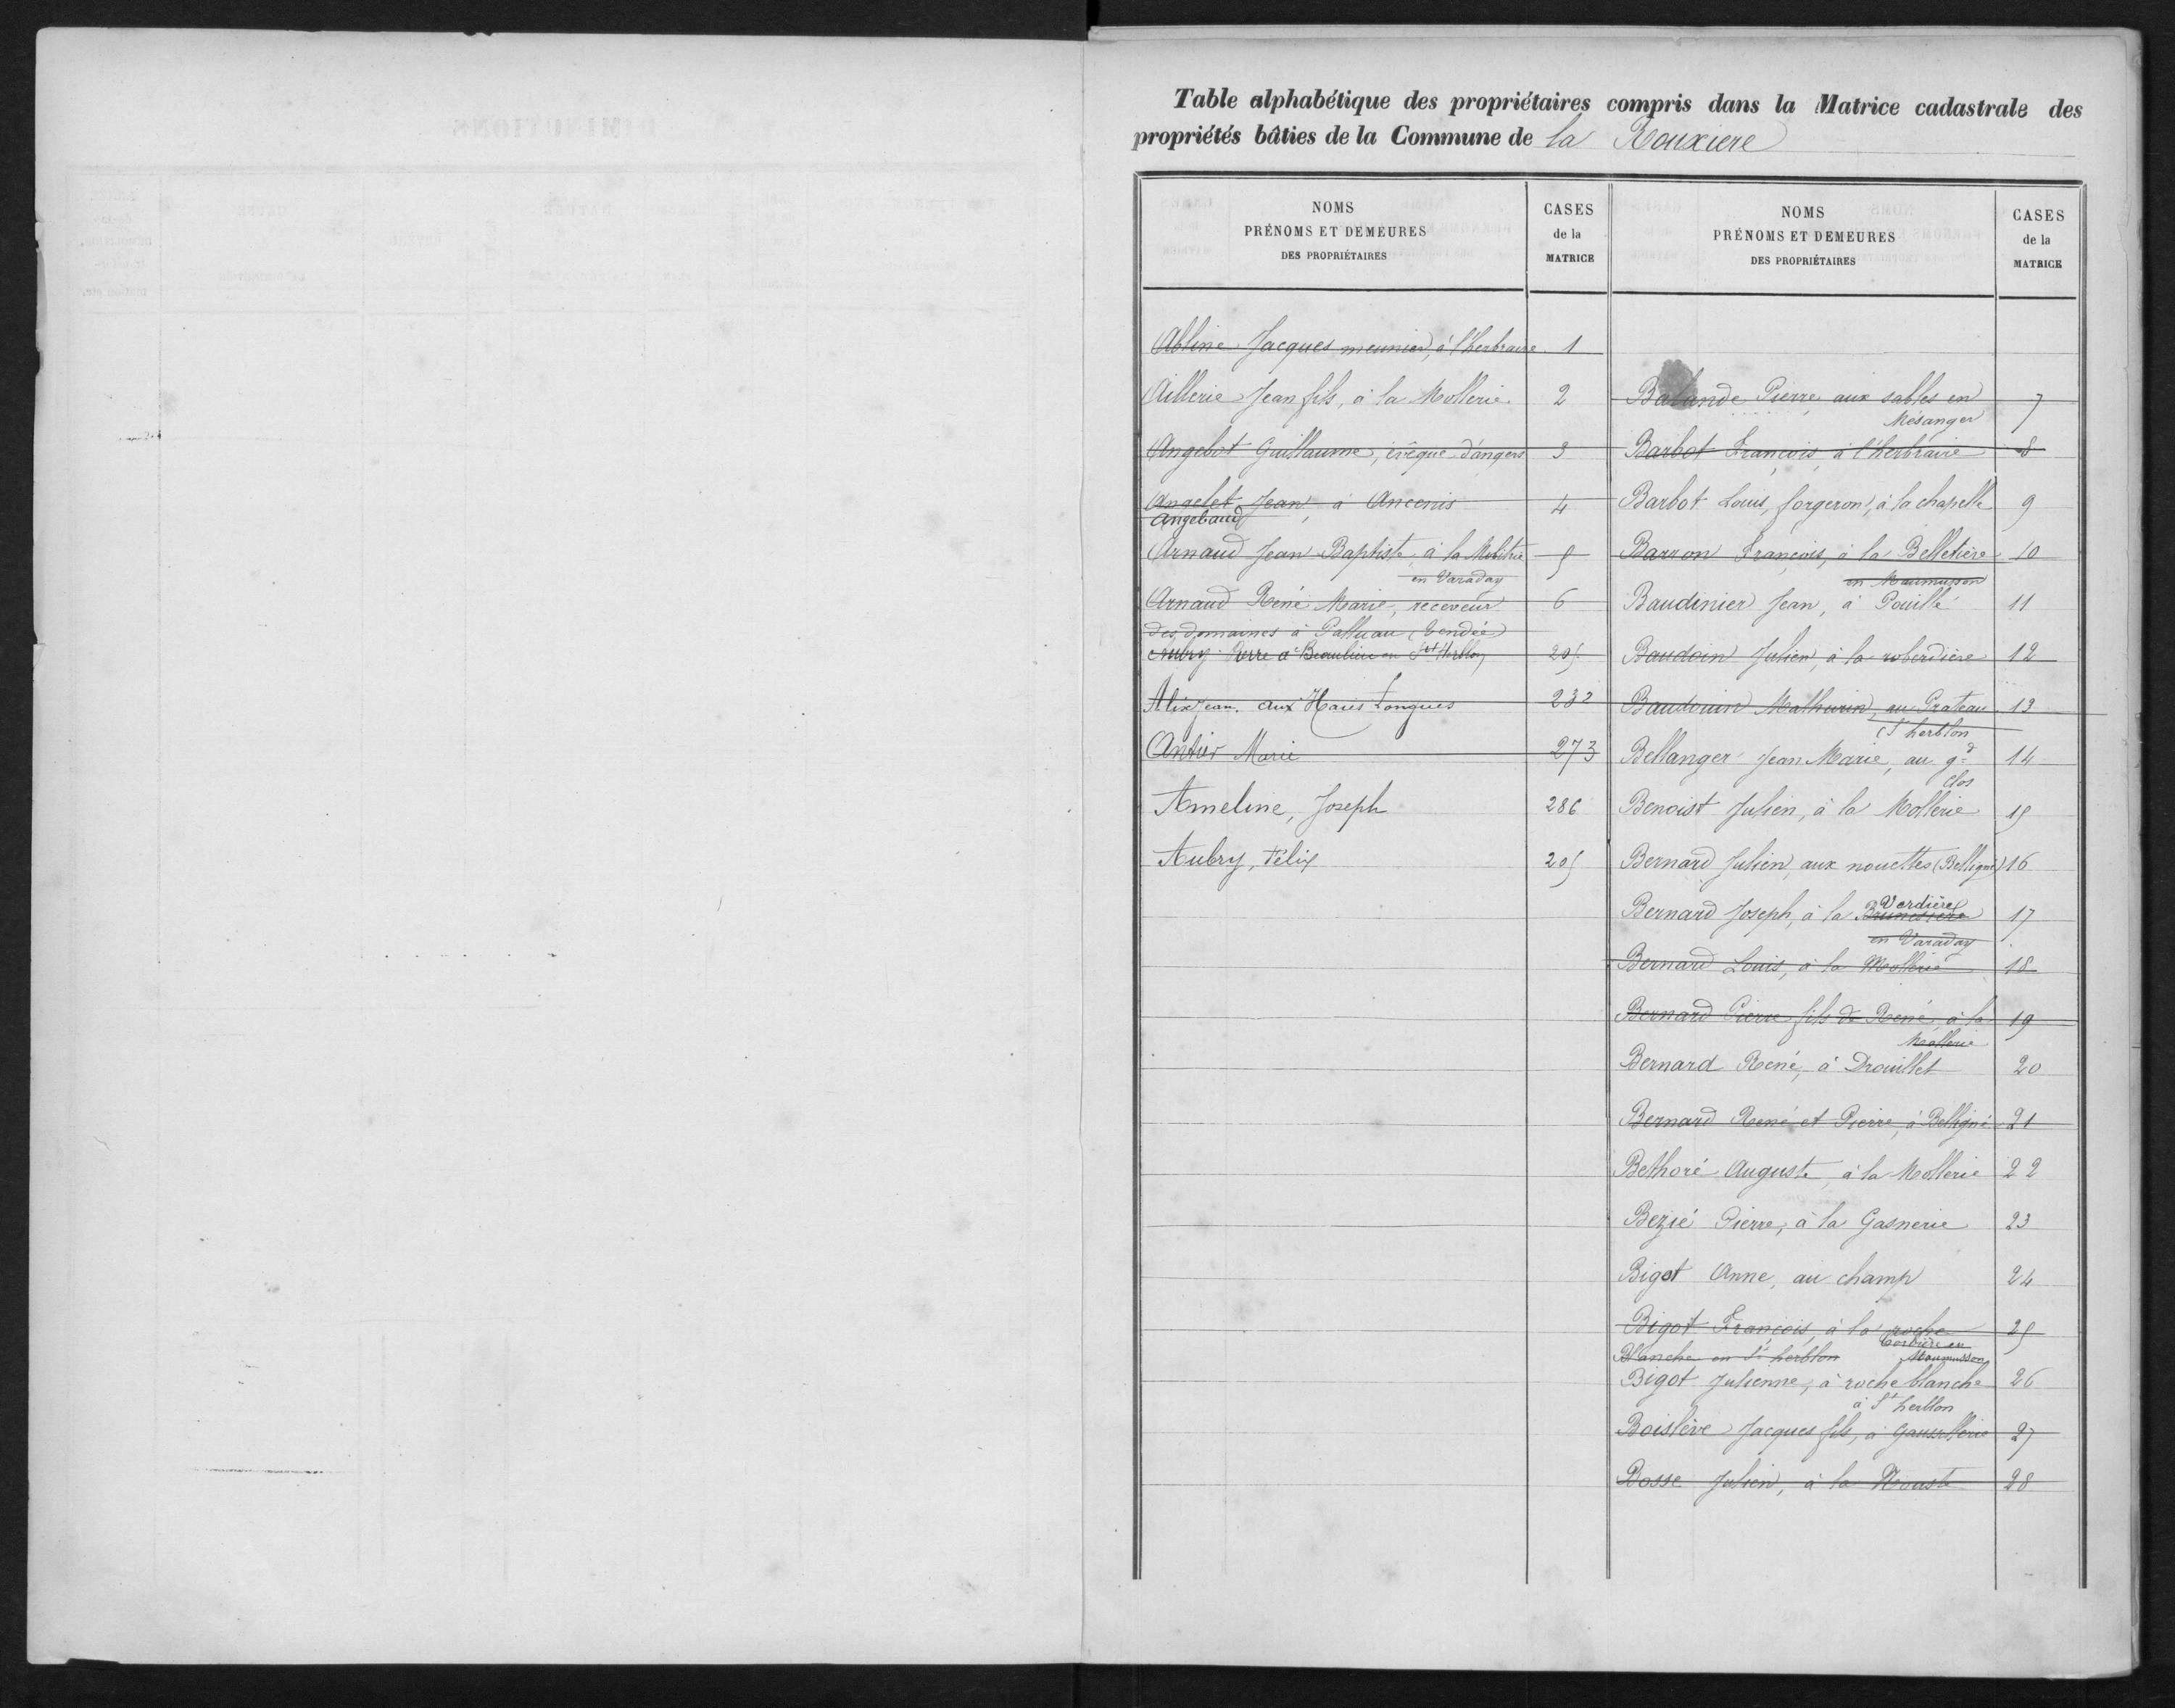 Table alphabétique des propriétaires compris dans la Matrice cadastrale des
propriétés bâties de la Commune de la Rouxiere
NOMS
PRÉNOMS ET DEMEURES
DES PROPRIÉTAIRES
CASES
de la
MATRICE
Abline Jacques meunier, à l'herbraire 1
Aillerie Jean fils, à la Mollerie 2
Angebot Guillaume, évêque d'angers 3
Angelet Jean, à Ancenis 4
Angebaud
Arnaud Jean Baptiste, à la 5
en Varaday
Arnaud René Marie, receveur 6
des domaines à Palluau (Vendée)
Aubry Pierre à Beaulieu en St Herblon 205
Alix Jean, aux Haies Longues 232
Antier Marie 273
Ameline, Joseph 286
Aubry, Félix 205
NOMS
PRÉNOMS ET DEMEURES
DES PROPRIÉTAIRES
CASES
de la
MATRICE
Balande Pierre aux sables en 7
Mésanger
Barbot François à l'herbraire 8
Barbot Louis, forgeron, à la chapelle 9
Barron François, à la Belletière 10
en Maumusson
Baudinier Jean, à Pouillé 11
Baudoin Julien, à la roberdière 12
Baudouin Mathurin, au Prateau 13
St herblon
Bellanger Jean Marie, au gd 14
clos
Benoist Julien, à la Mollerie 15
Bernard Julien, aux nouettes (Belligné) 16
Verdière
Bernard Joseph, à la 17
en Varaday
Bernard Louis, à la Mollerie 18
Bernard Pierre fils de René, à la 19
Mollerie
Bernard René, à Drouillet 20
Bernard René et Pierre, à Belligné 21
Bethoré Auguste, à la Mollerie 22
Bezié Pierre, à la Gasnerie 23
Bigot Anne, au champ 24
Bigot François, à la roche 25
Blanche en St herblon Corbière en
Maumusson
Bigot Julienne, à roche blanche 26
à St herblon
Boislève Jacques fils, à 27
Bosse Julien, à la 28